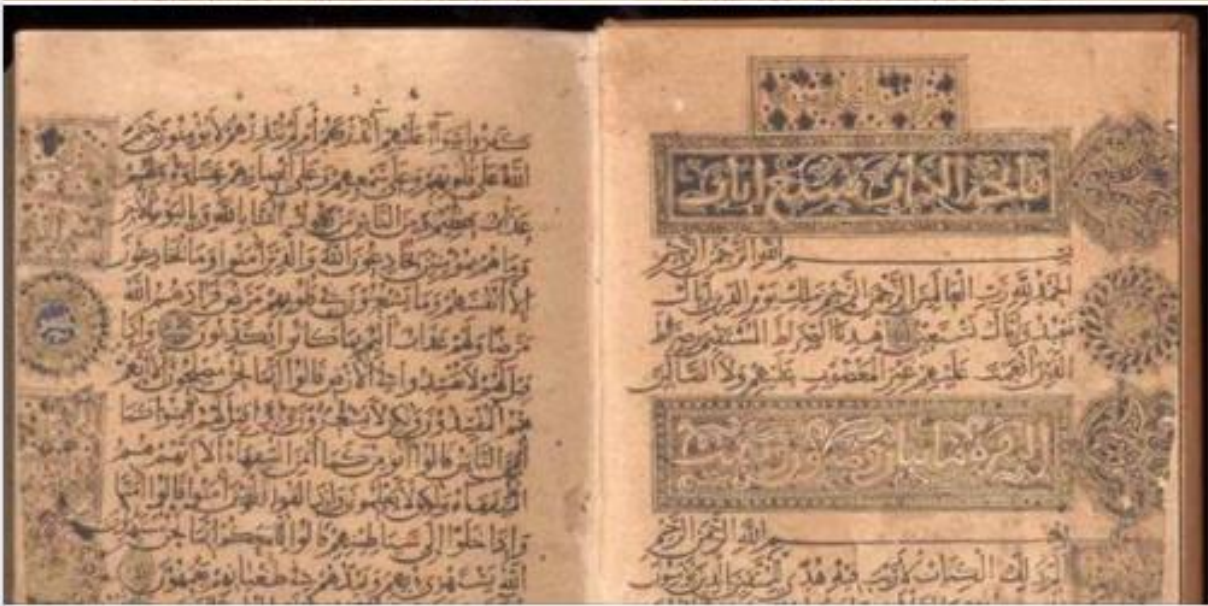 فاتحة الكتاب سبع ايات
بسم الله الرحمن الرحيم
الحمد لله رب العالمين الرحمن الرحيم ملك يوم الدين اياك
نعبد واياك نستعين اهدنا الصراط المستقيم صراط
الذين انعمت عليهم غير المغضوب عليهم ولا الضالين
البقرة مايتان وثمانون وست
بسم الله الرحمن الرحيم
الم ذلك الكتاب لا ريب فيه هدى للمتقين الذين يومنون
كفروا سواء عليهم أأنذرتهم أم لم تنذرهم لا يومنون ختم
الله على قلوبهم وعلى سمعهم وعلى ابصارهم غشاوة ولهم
عذاب عظيم ومن الناس من يقول آمنا بالله وباليوم الآخر
وما هم بمومنين يخادعون الله والذين آمنوا وما يخادعون
إلا أنفسهم وما يشعرون في قلوبهم مرض فزادهم الله
مرضا ولهم عذاب اليم بما كانوا يكذبون وإذا
قيل لهم لا تفسدوا في الأرض قالوا إنما نحن مصلحون ألا إنهم
هم المفسدون ولكن لا يشعرون وإذا قيل لهم آمنوا كما
آمن الناس قالوا أنومن كما آمن السفهاء ألا إنهم هم
السفهاء ولكن لا يعلمون وإذا لقوا الذين آمنوا قالوا آمنا
وإذا خلوا إلى شياطينهم قالوا إنا معكم إنما نحن مستهزون
الله يستهزئ بهم ويمدهم في طغيانهم يعمهون